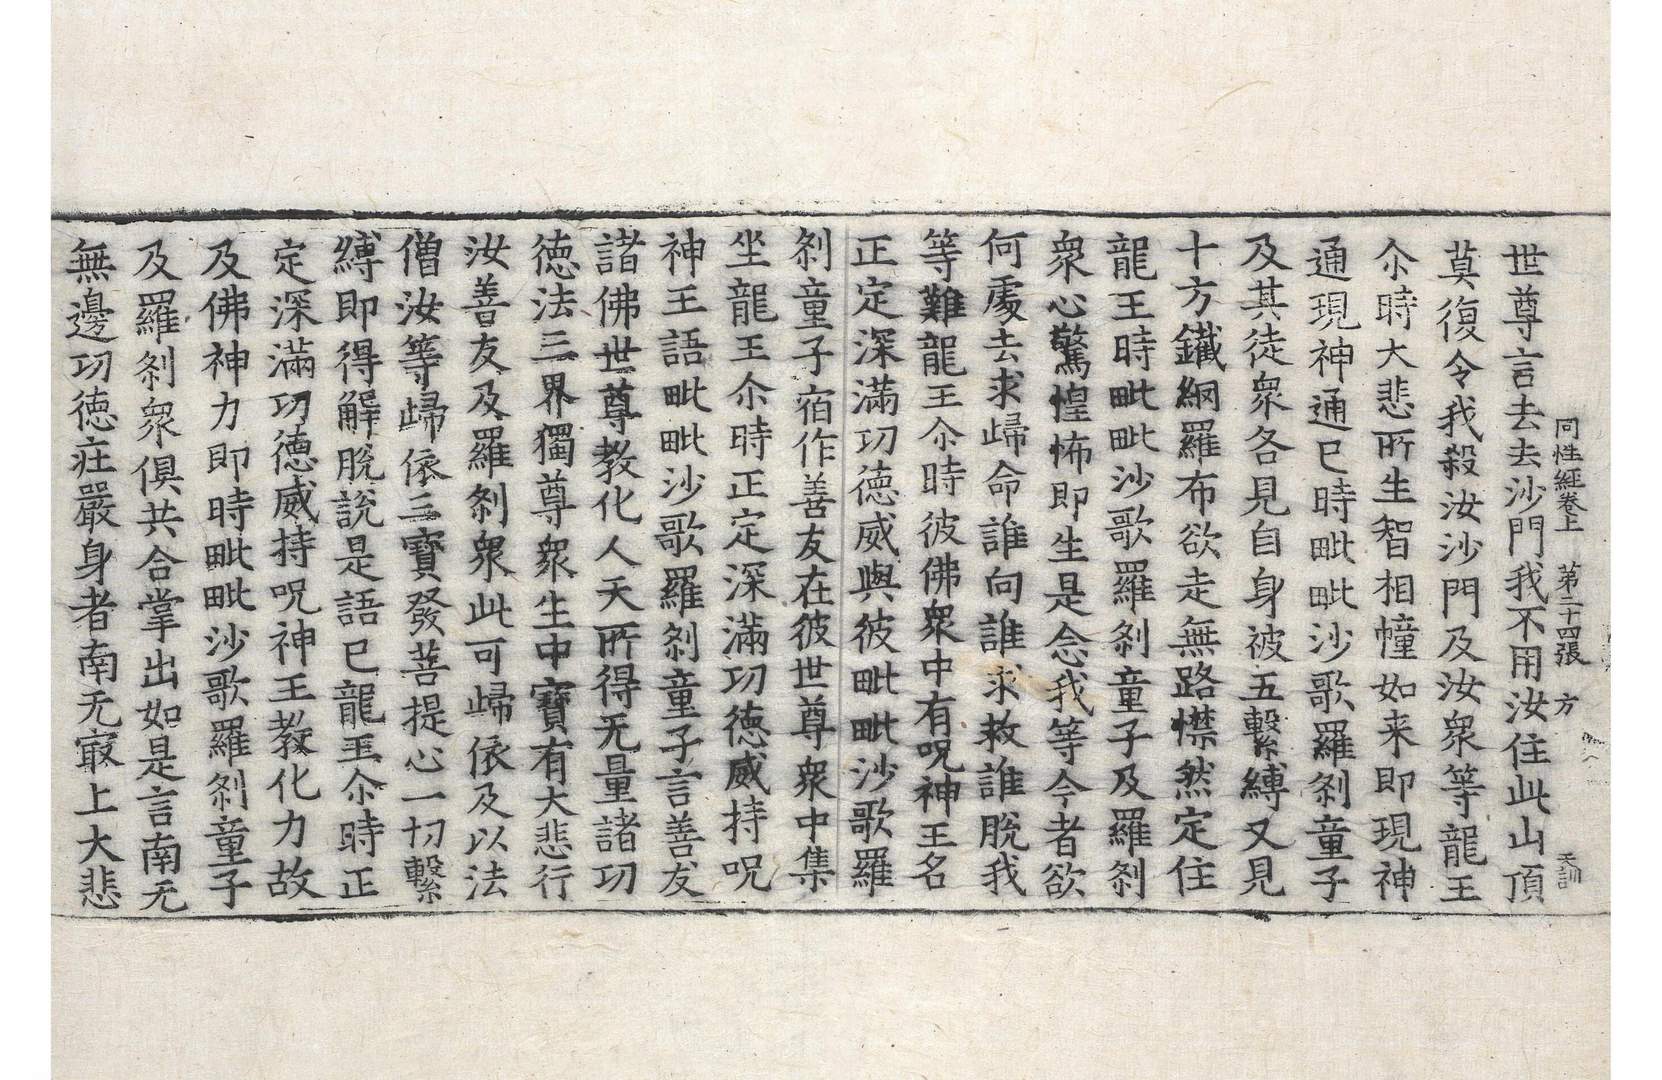 同性經卷上 第二十四張 方 天訓
世尊言去去沙門我不用汝住此山頂
莫復令我殺汝沙門及汝衆等龍王
尒時大悲所生智相幢如来即現神
通現神通已時毗毗沙歌羅剎童子
及其徒衆各見自身被五繫縛又見
十方鐵網羅布欲走無路㦗然定住
龍王時毗毗沙歌羅剎童子及羅剎
衆心驚惶怖即生是念我等今者欲
何處去求歸命誰向誰求救誰脫我
等難龍王尒時彼佛衆中有呪神王名
正定深滿功德威與彼毗毗沙歌羅
剎童子宿作善友在彼世尊衆中集
坐龍王尒時正定深滿功德威持呪
神王語毗毗沙歌羅剎童子言善友
諸佛世尊教化人天所得无量諸功
德法三界獨尊衆生中寶有大悲行
汝善友及羅剎衆此可歸依及以法
僧汝等歸依三寶發菩提心一切繫
縛即得解脫說是語已龍王尒時正
定深滿功德威持呪神王教化力故
及佛神力即時毗毗沙歌羅剎童子
及羅剎衆俱共合掌出如是言南无
無邊功德莊嚴身者南无㝡上大悲